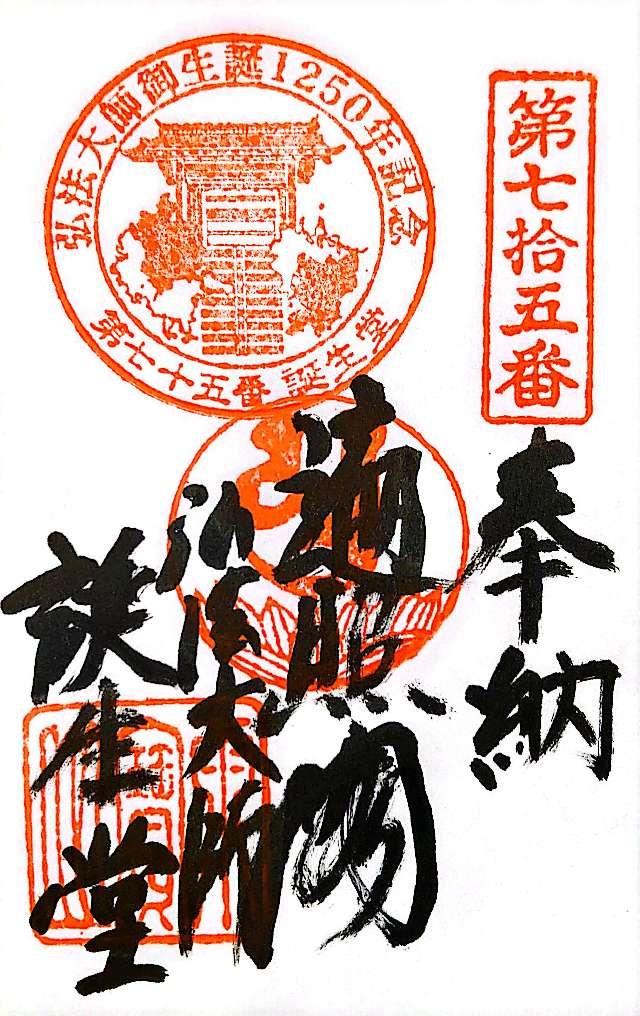 弘法大師御生誕1250年記念
第七十五番 誕生堂
第七拾五番
奉納
遍照閣
弘法大師
誕生堂